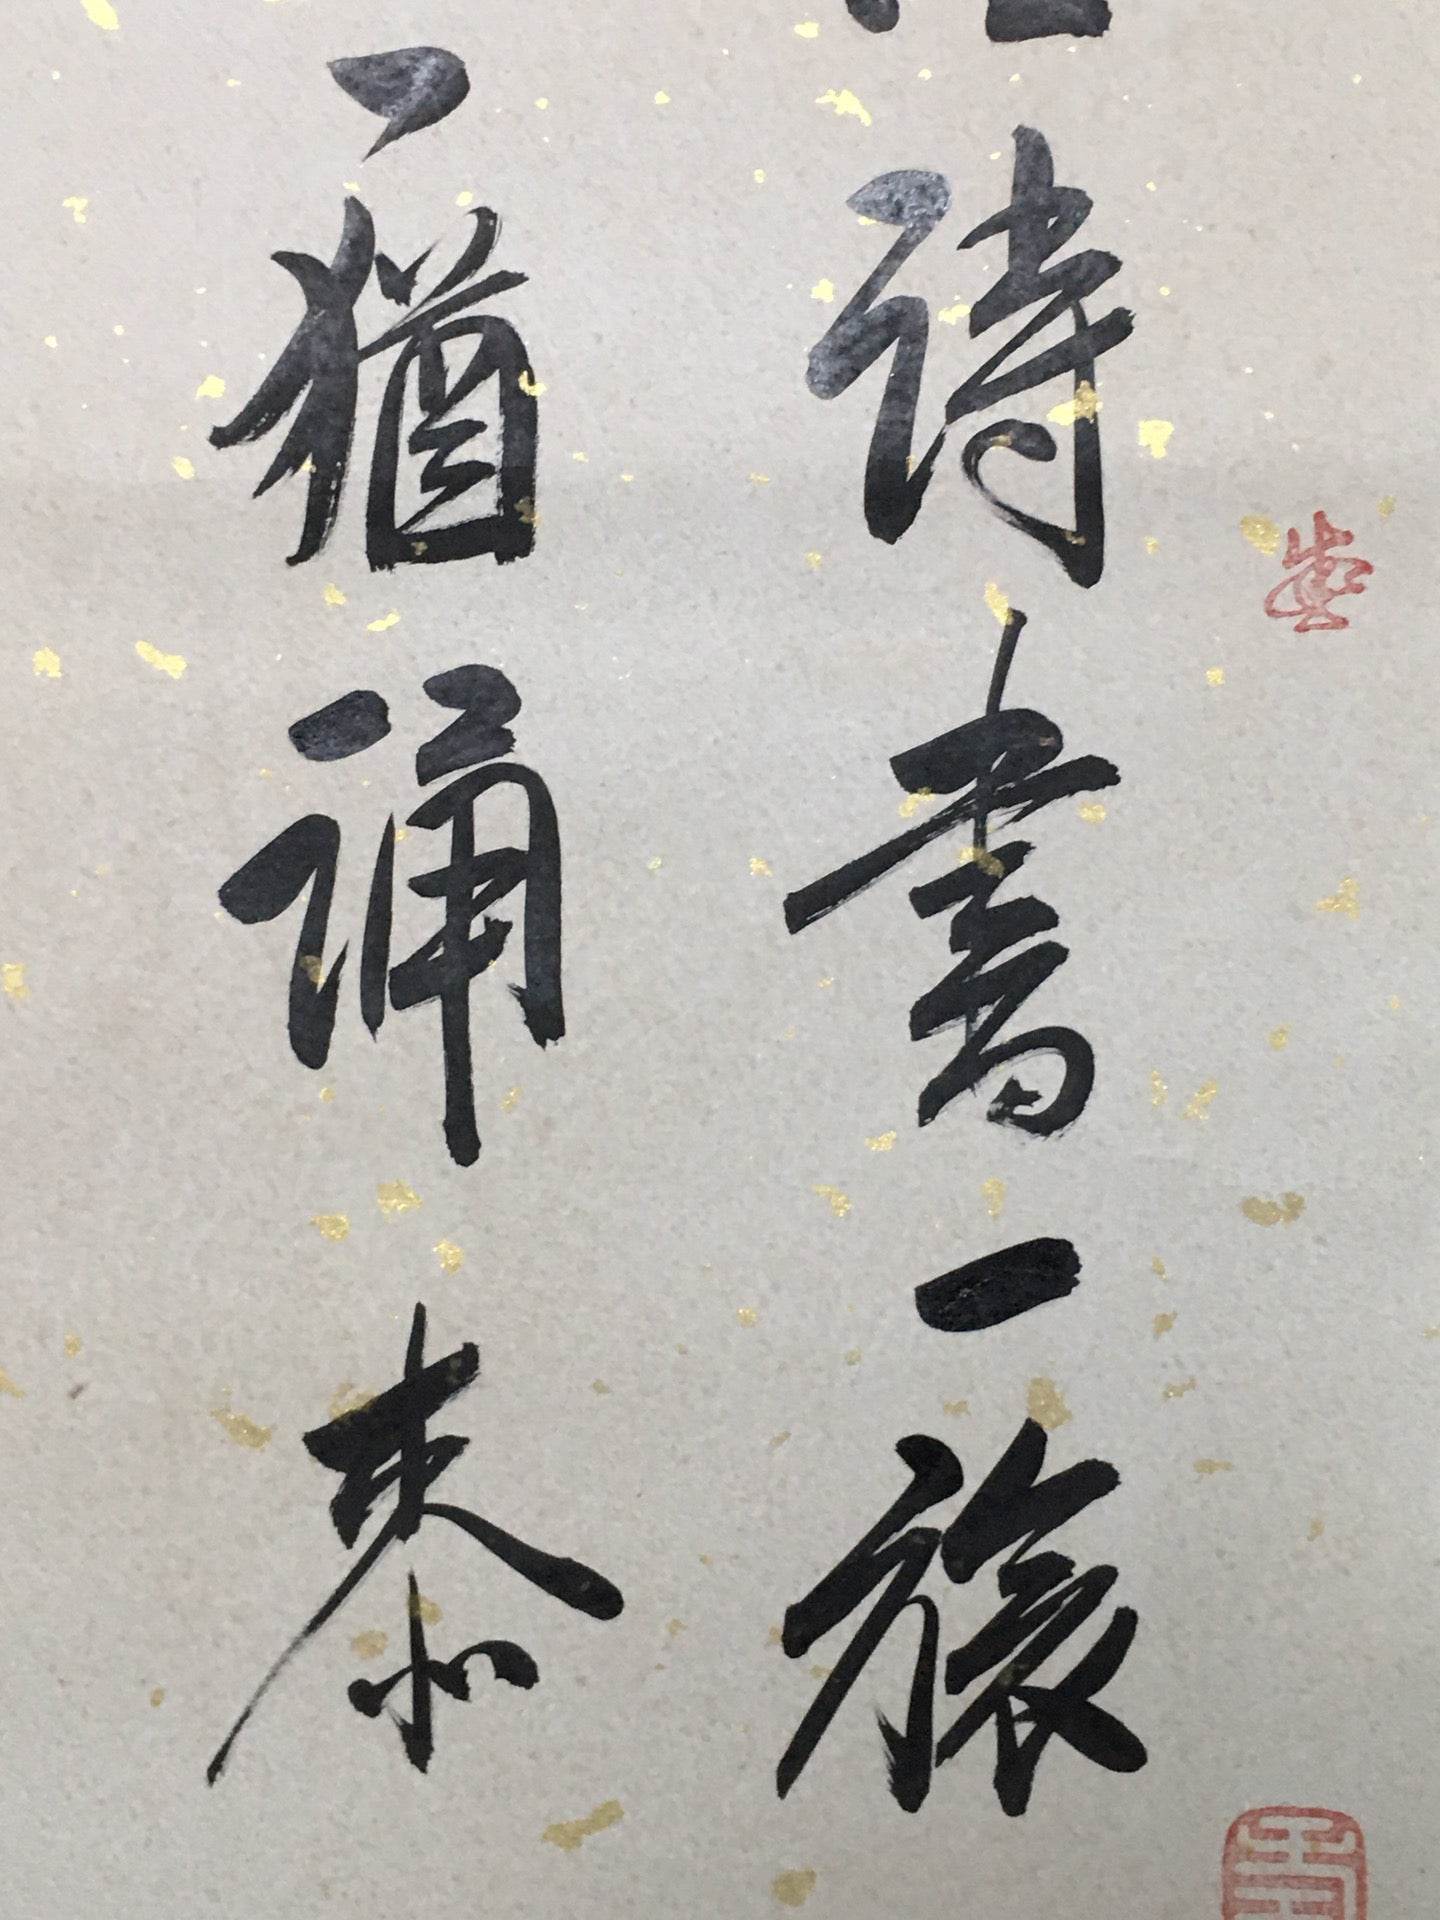 詩書一旅
猶誦泰